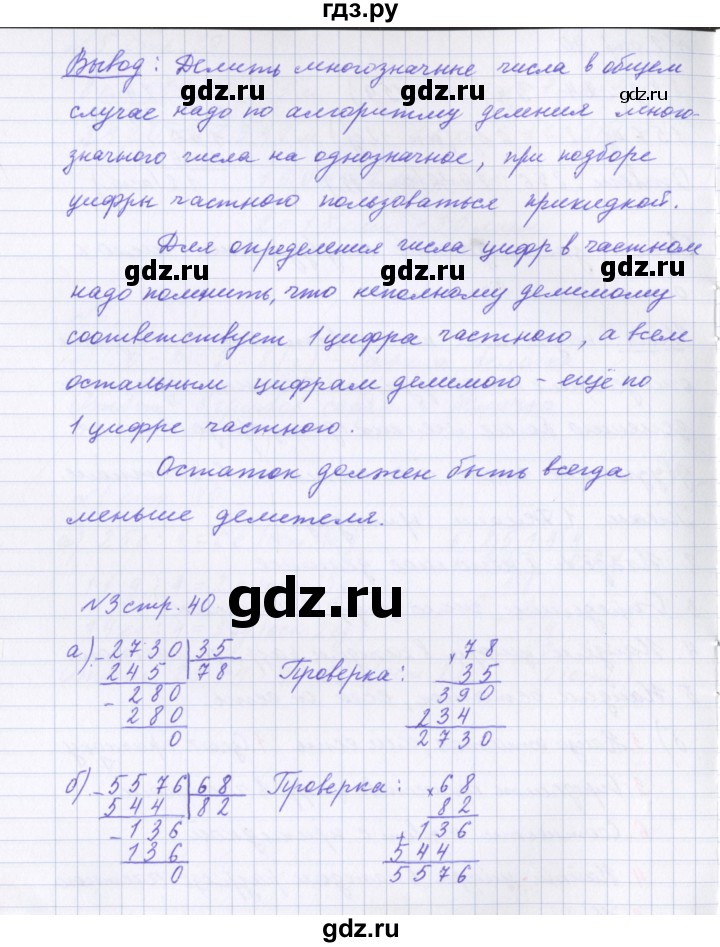 гдз.ру
Вывод: Делить многозначные числа в общем
gdz.ru gdz.ru gdz.ru
случае надо по алгоритму деления много-
значного числа на однозначное, при подборе
цифры частного пользоваться прикидкой.
Для определения числа цифр в частном
gdz.ru gdz.ru gdz.ru
надо помнить, что неполному делимому
соответствует 1 цифра частного, а всем
остальным цифрам делимого - ещё по
1 цифре частного.
Остаток должен быть всегда
меньше делителя.
gdz.ru
№3 стр. 40
а) - 2730 | 35 Проверка: × 78
245 | 78 35
- 280 390
280 234
0 2730
б) - 5576 | 68 Проверка: × 68
544 | 82 82
- 136 + 136
136 544
0 5576
gdz.ru